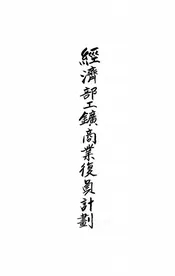 經濟部工鑛商業復員計劃